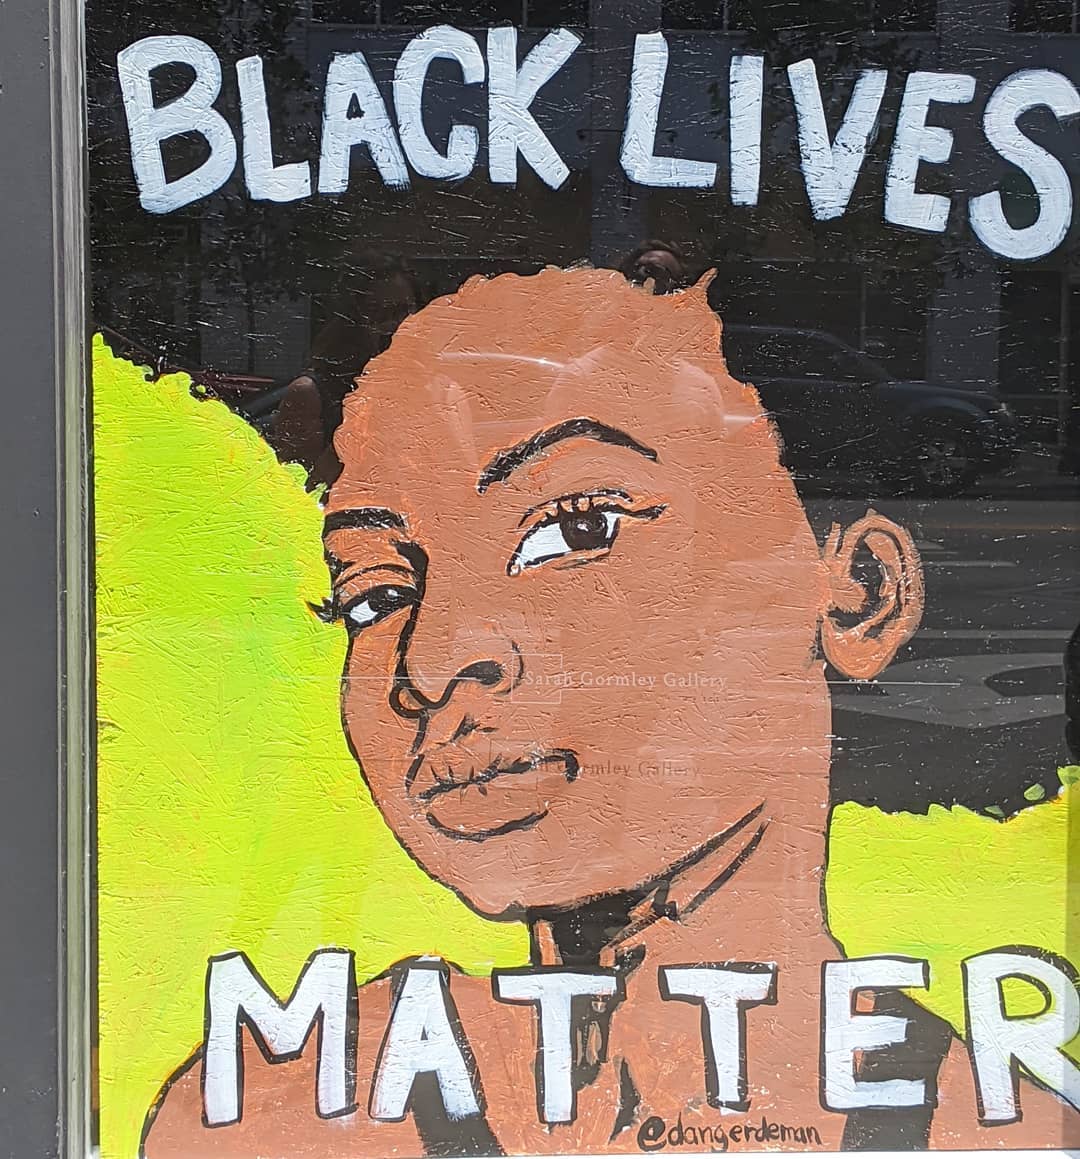 BLACK LIVES
Sarah Gormley Gallery
Gormley Gallery
MATTER
@dangerdeman